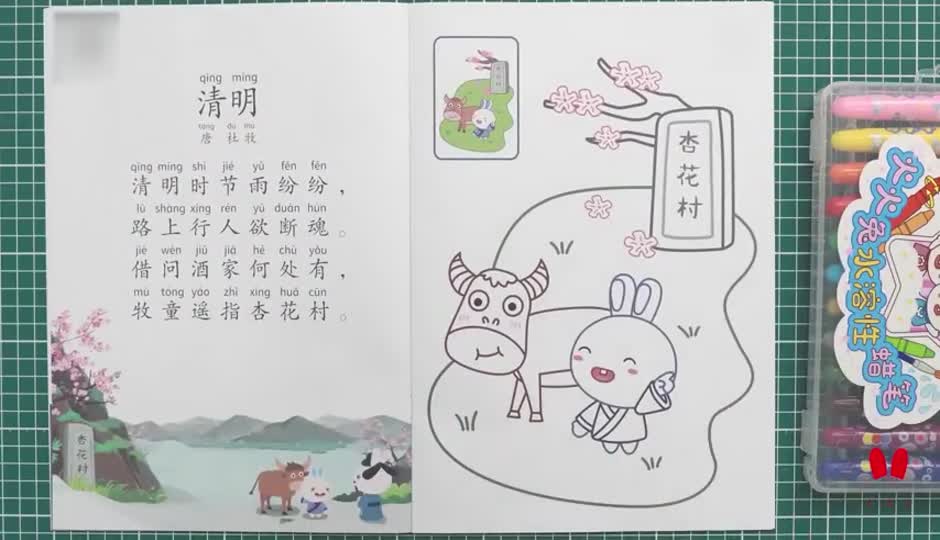 qīng míng
清明
táng dù mù
唐 杜牧
qīng míng shí jié yǔ fēn fēn
清明时节雨纷纷，
lù shàng xíng rén yù duàn hún
路上行人欲断魂。
jiè wèn jiǔ jiā hé chù yǒu
借问酒家何处有，
mù tóng yáo zhǐ xìng huā cūn
牧童遥指杏花村。
杏花村
杏花村
火火兔水溶性蜡笔